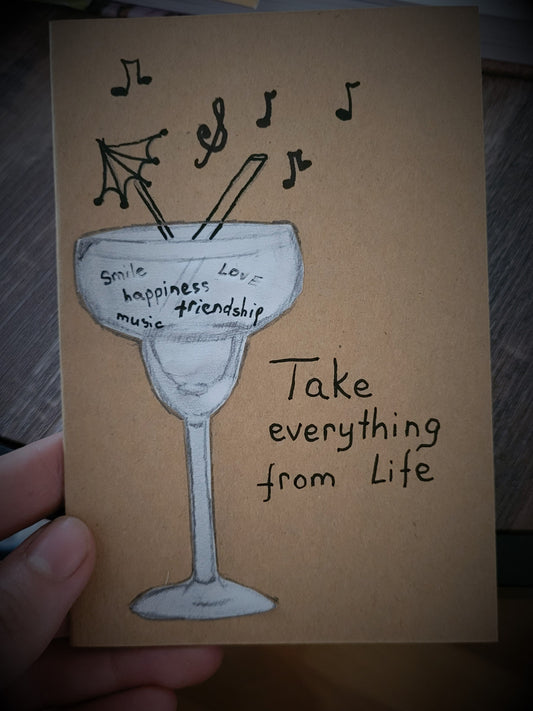 Smile
Love
happiness
friendship
music
Take
everything
from Life